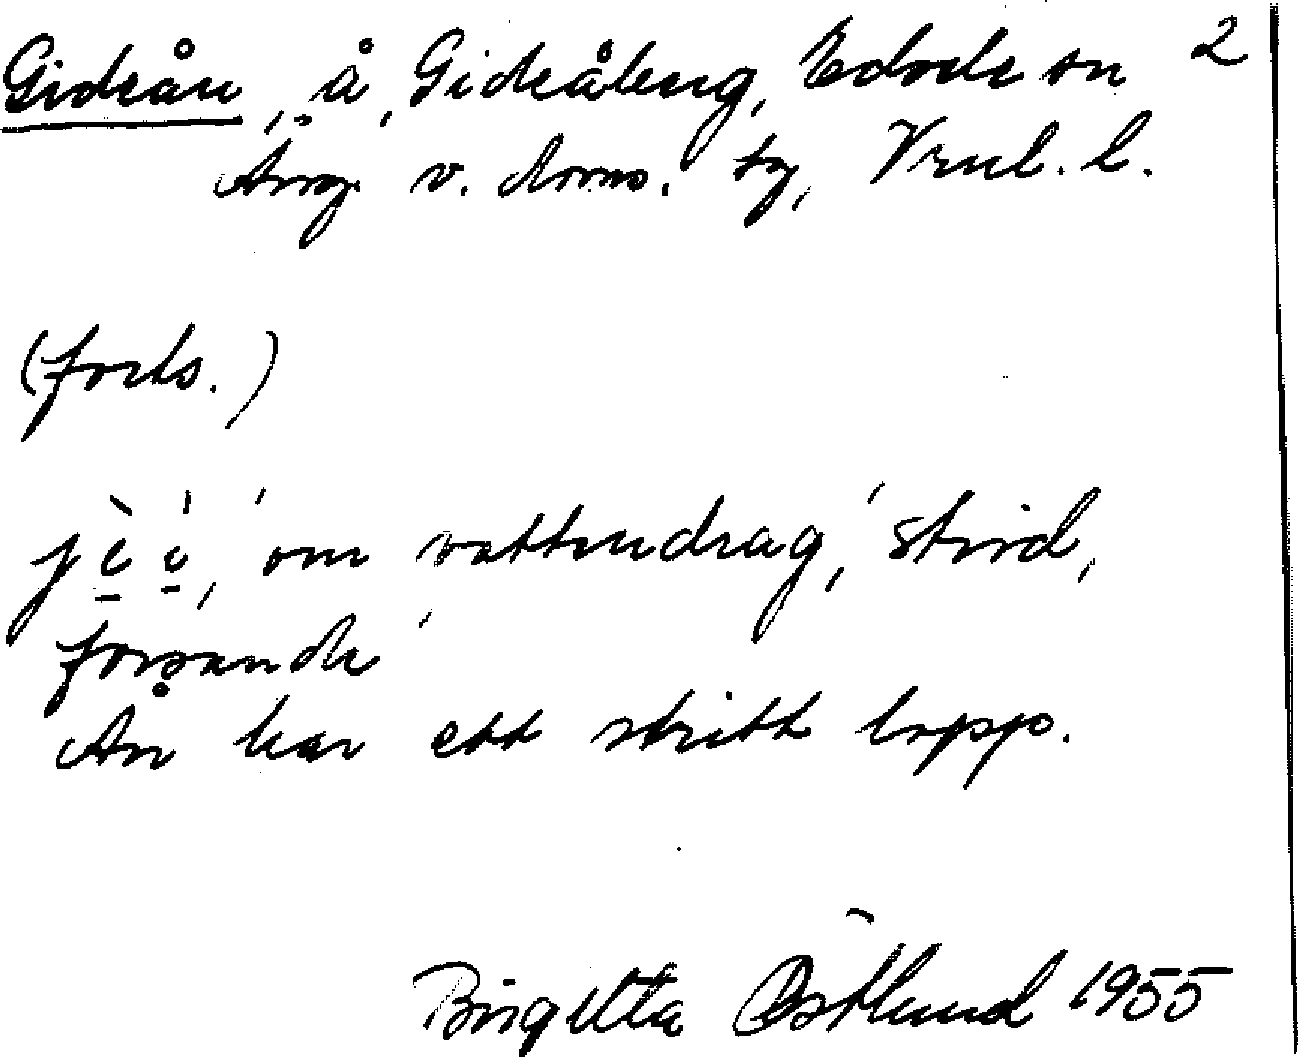 Gideån, å, Gideåberg, Edsele sn 2
Ång. v. doms. fg, Vnl. l.
(forts.)
jèi, 'om vattendrag', 'strid,
forsande'
Ån har ett stritt lopp.
Birgitta Östlund 1955